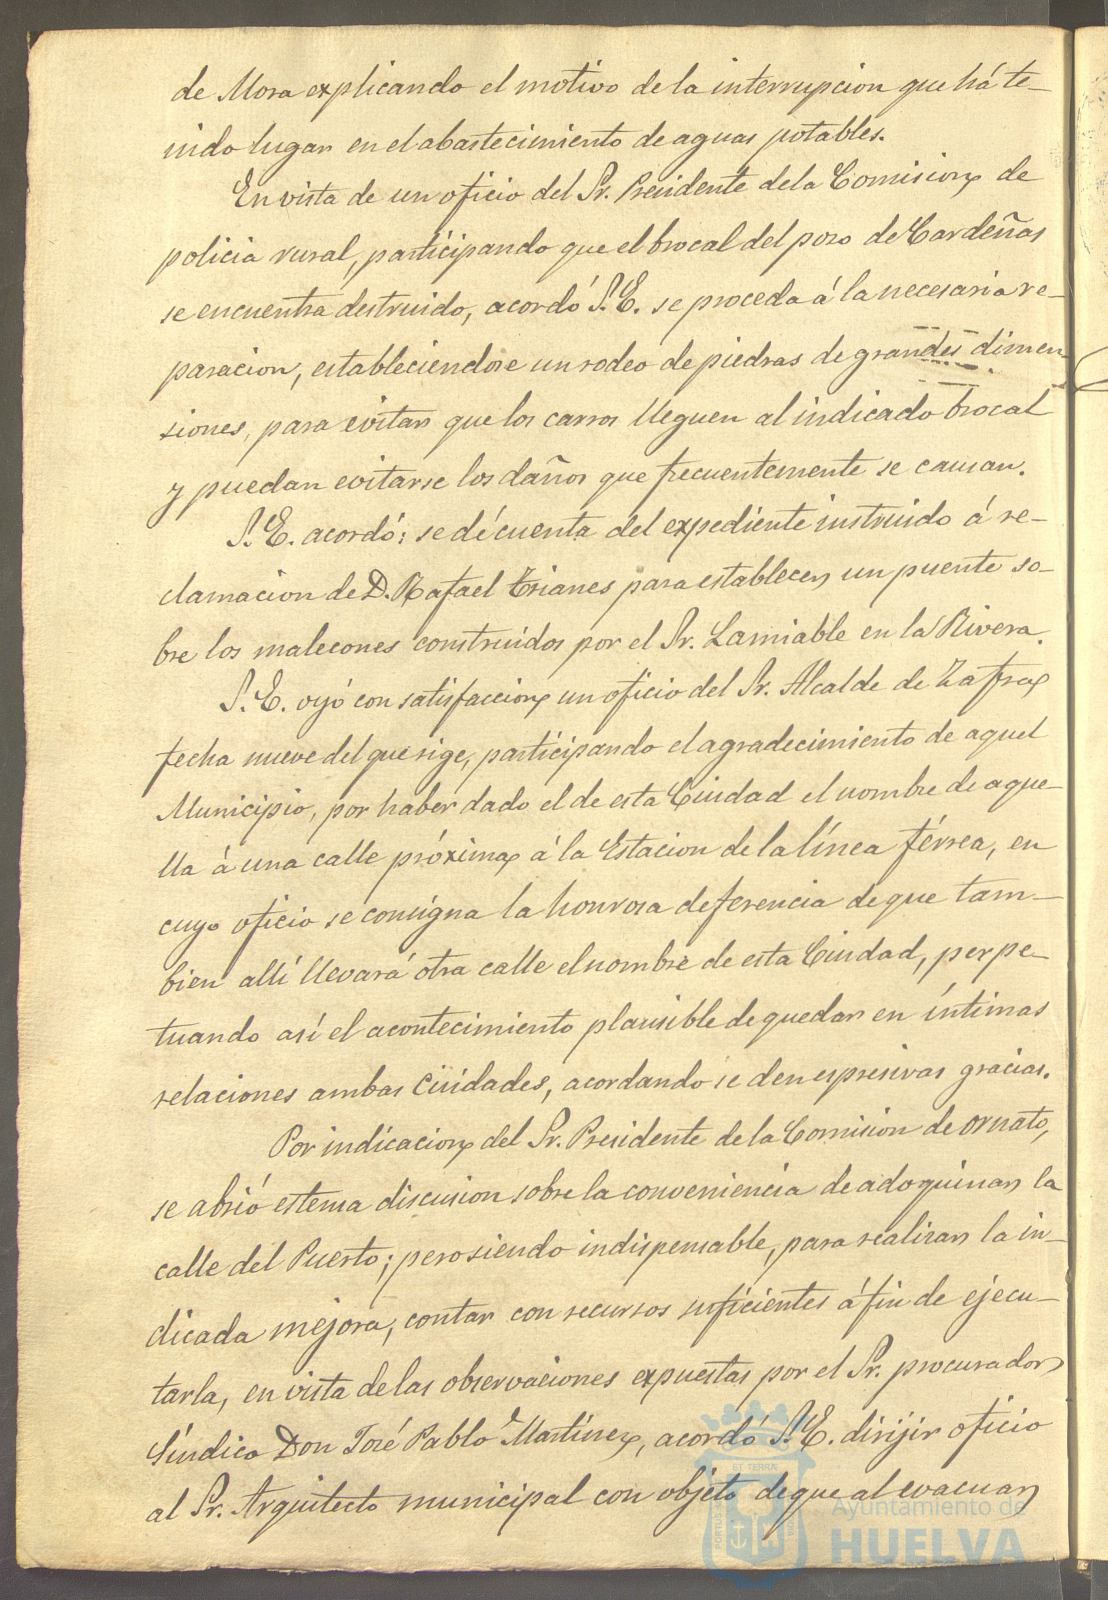 de Mora explicando el motivo de la interrupcion que há te-
nido lugar en el abastecimiento de aguas potables.
En vista de un oficio del Sr. Presidente de la Comision de
policia rural, participando que el brocal del pozo de Cardeñas
se encuentra destruido, acordó S.E. se proceda á la necesaria re-
paracion, estableciendose un rodeo de piedras de grandes dimen-
siones, para evitar que los carros lleguen al indicado brocal
y puedan evitarse los daños que frecuentemente se causan.
S.E. acordó: se dé cuenta del expediente instruido á re-
clamacion de D. Rafael Trianes para establecer un puente so-
bre los malecones construidos por el Sr. Lamiable en la Rivera.
S.E. oyó con satisfaccion un oficio del Sr. Alcalde de Zafra
fecha nueve del que rige, participando el agradecimiento de aquel
Municipio, por haber dado el de esta Ciudad el nombre de aque-
lla á una calle próxima á la Estacion de la línea férrea, en
cuyo oficio se consigna la honrosa deferencia de que tam-
bien allí llevará otra calle el nombre de esta Ciudad, perpe-
tuando así el acontecimiento plausible de quedar en íntimas
relaciones ambas Ciudades, acordando se den espresivas gracias.
Por indicacion del Sr. Presidente de la Comision de ornato,
se abrió estensa discusion sobre la conveniencia de adoquinar la
calle del Puerto; pero siendo indispensable, para realizar la in-
dicada mejora, contar con recursos suficientes á fin de ejecu-
tarla, en vista de las observaciones expuestas por el Sr. procurador
Síndico Don José Pablo Martinez, acordó S.E. dirijir oficio
al Sr. Arquitecto municipal con objeto de que al evacuar
ET TERRÆ
Ayuntamiento de
HUELVA